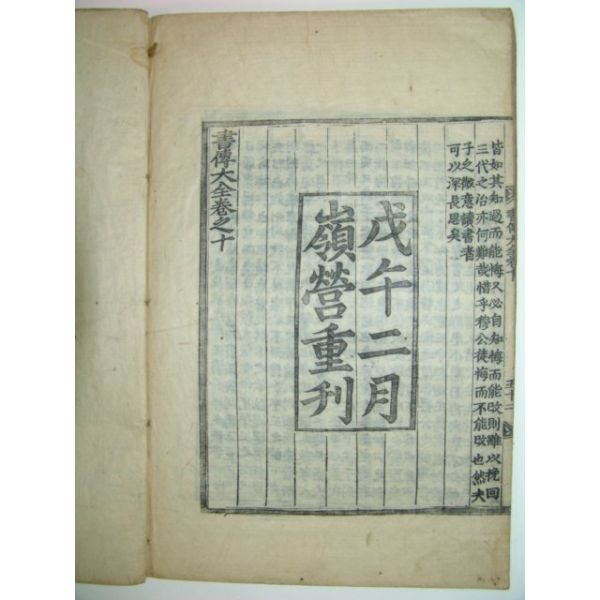 皆如其知過而能悔又必自知悔而能改則難以挽回
三代之治亦何難哉惜乎穆公徒悔而不能改也然夫
子之微意讀書者
可以深長思矣
戊午二月
嶺營重刊
書傳大全卷之十